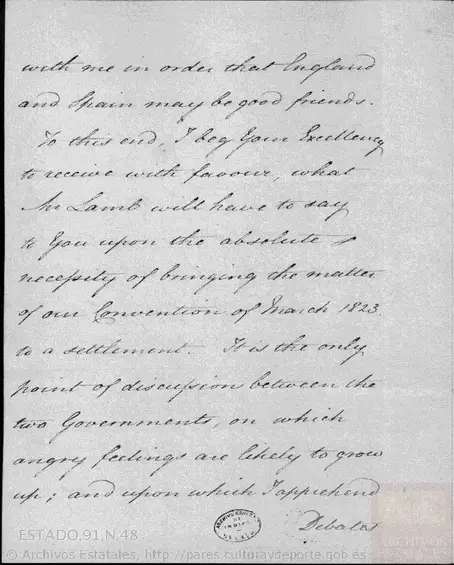 with me in order that England
and Spain may be good friends.
To this end, I beg Your Excellency
to receive with favour, what
Mr Lamb will have to say
to You upon the absolute
necessity of bringing the matter
of our Convention of March 1823.
to a settlement. It is the only
point of discussion between the
two Governments, on which
angry feelings are likely to grow
up; and upon which I apprehend
Debates
ESTADO,91,N.48
© Archivos Estatales, http://pares.culturaydeporte.gob.es